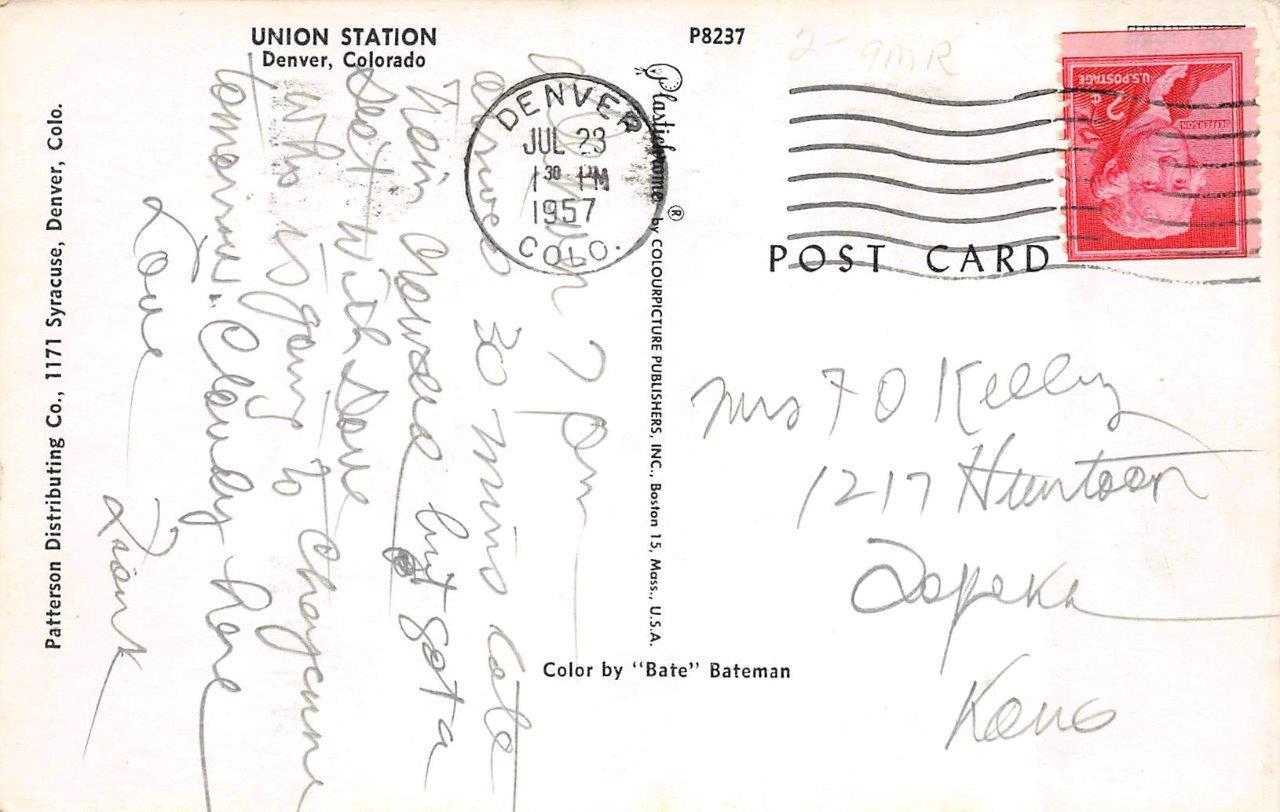 UNION STATION
Denver, Colorado
P8237
2- 9MR
U.S. POSTAGE
2¢
JEFFERSON
DENVER
JUL 23
1 30 PM
1957
COLO.
POST CARD
Plastichrome ® by COLOURPICTURE PUBLISHERS, INC., Boston 15, Mass., U.S.A.
Patterson Distributing Co., 1171 Syracuse, Denver, Colo.
7 pm
arrived 30 mins late
Train crowded but got a
seat with
who is going to Chayenne
tomorrow. Cloudy here
Love
Frank
Mrs F O Kelly
1217 Huntoon
Topeka
Kans
Color by "Bate" Bateman